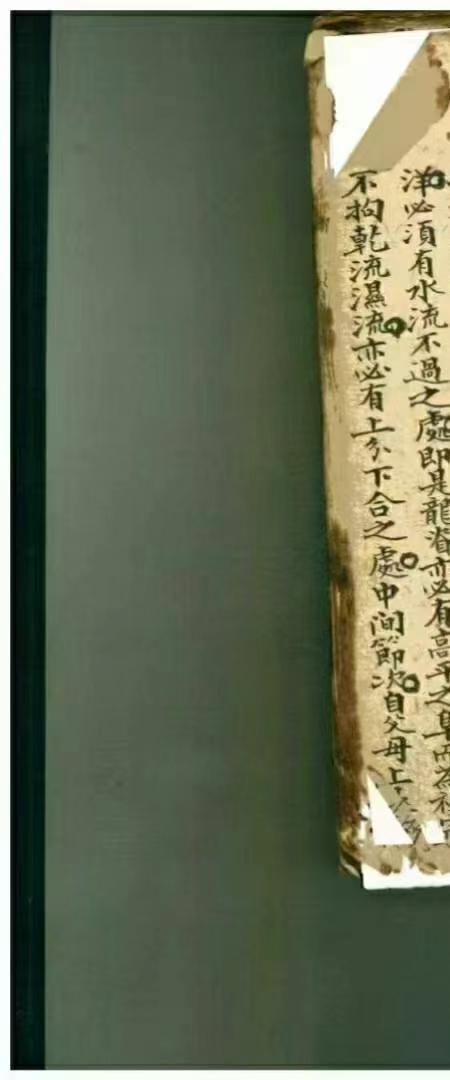 洋必須有水流不過之處即是龍脊亦必有高平之阜而為
不拘乾流濕流亦必有上分下合之處中间節次自父母上